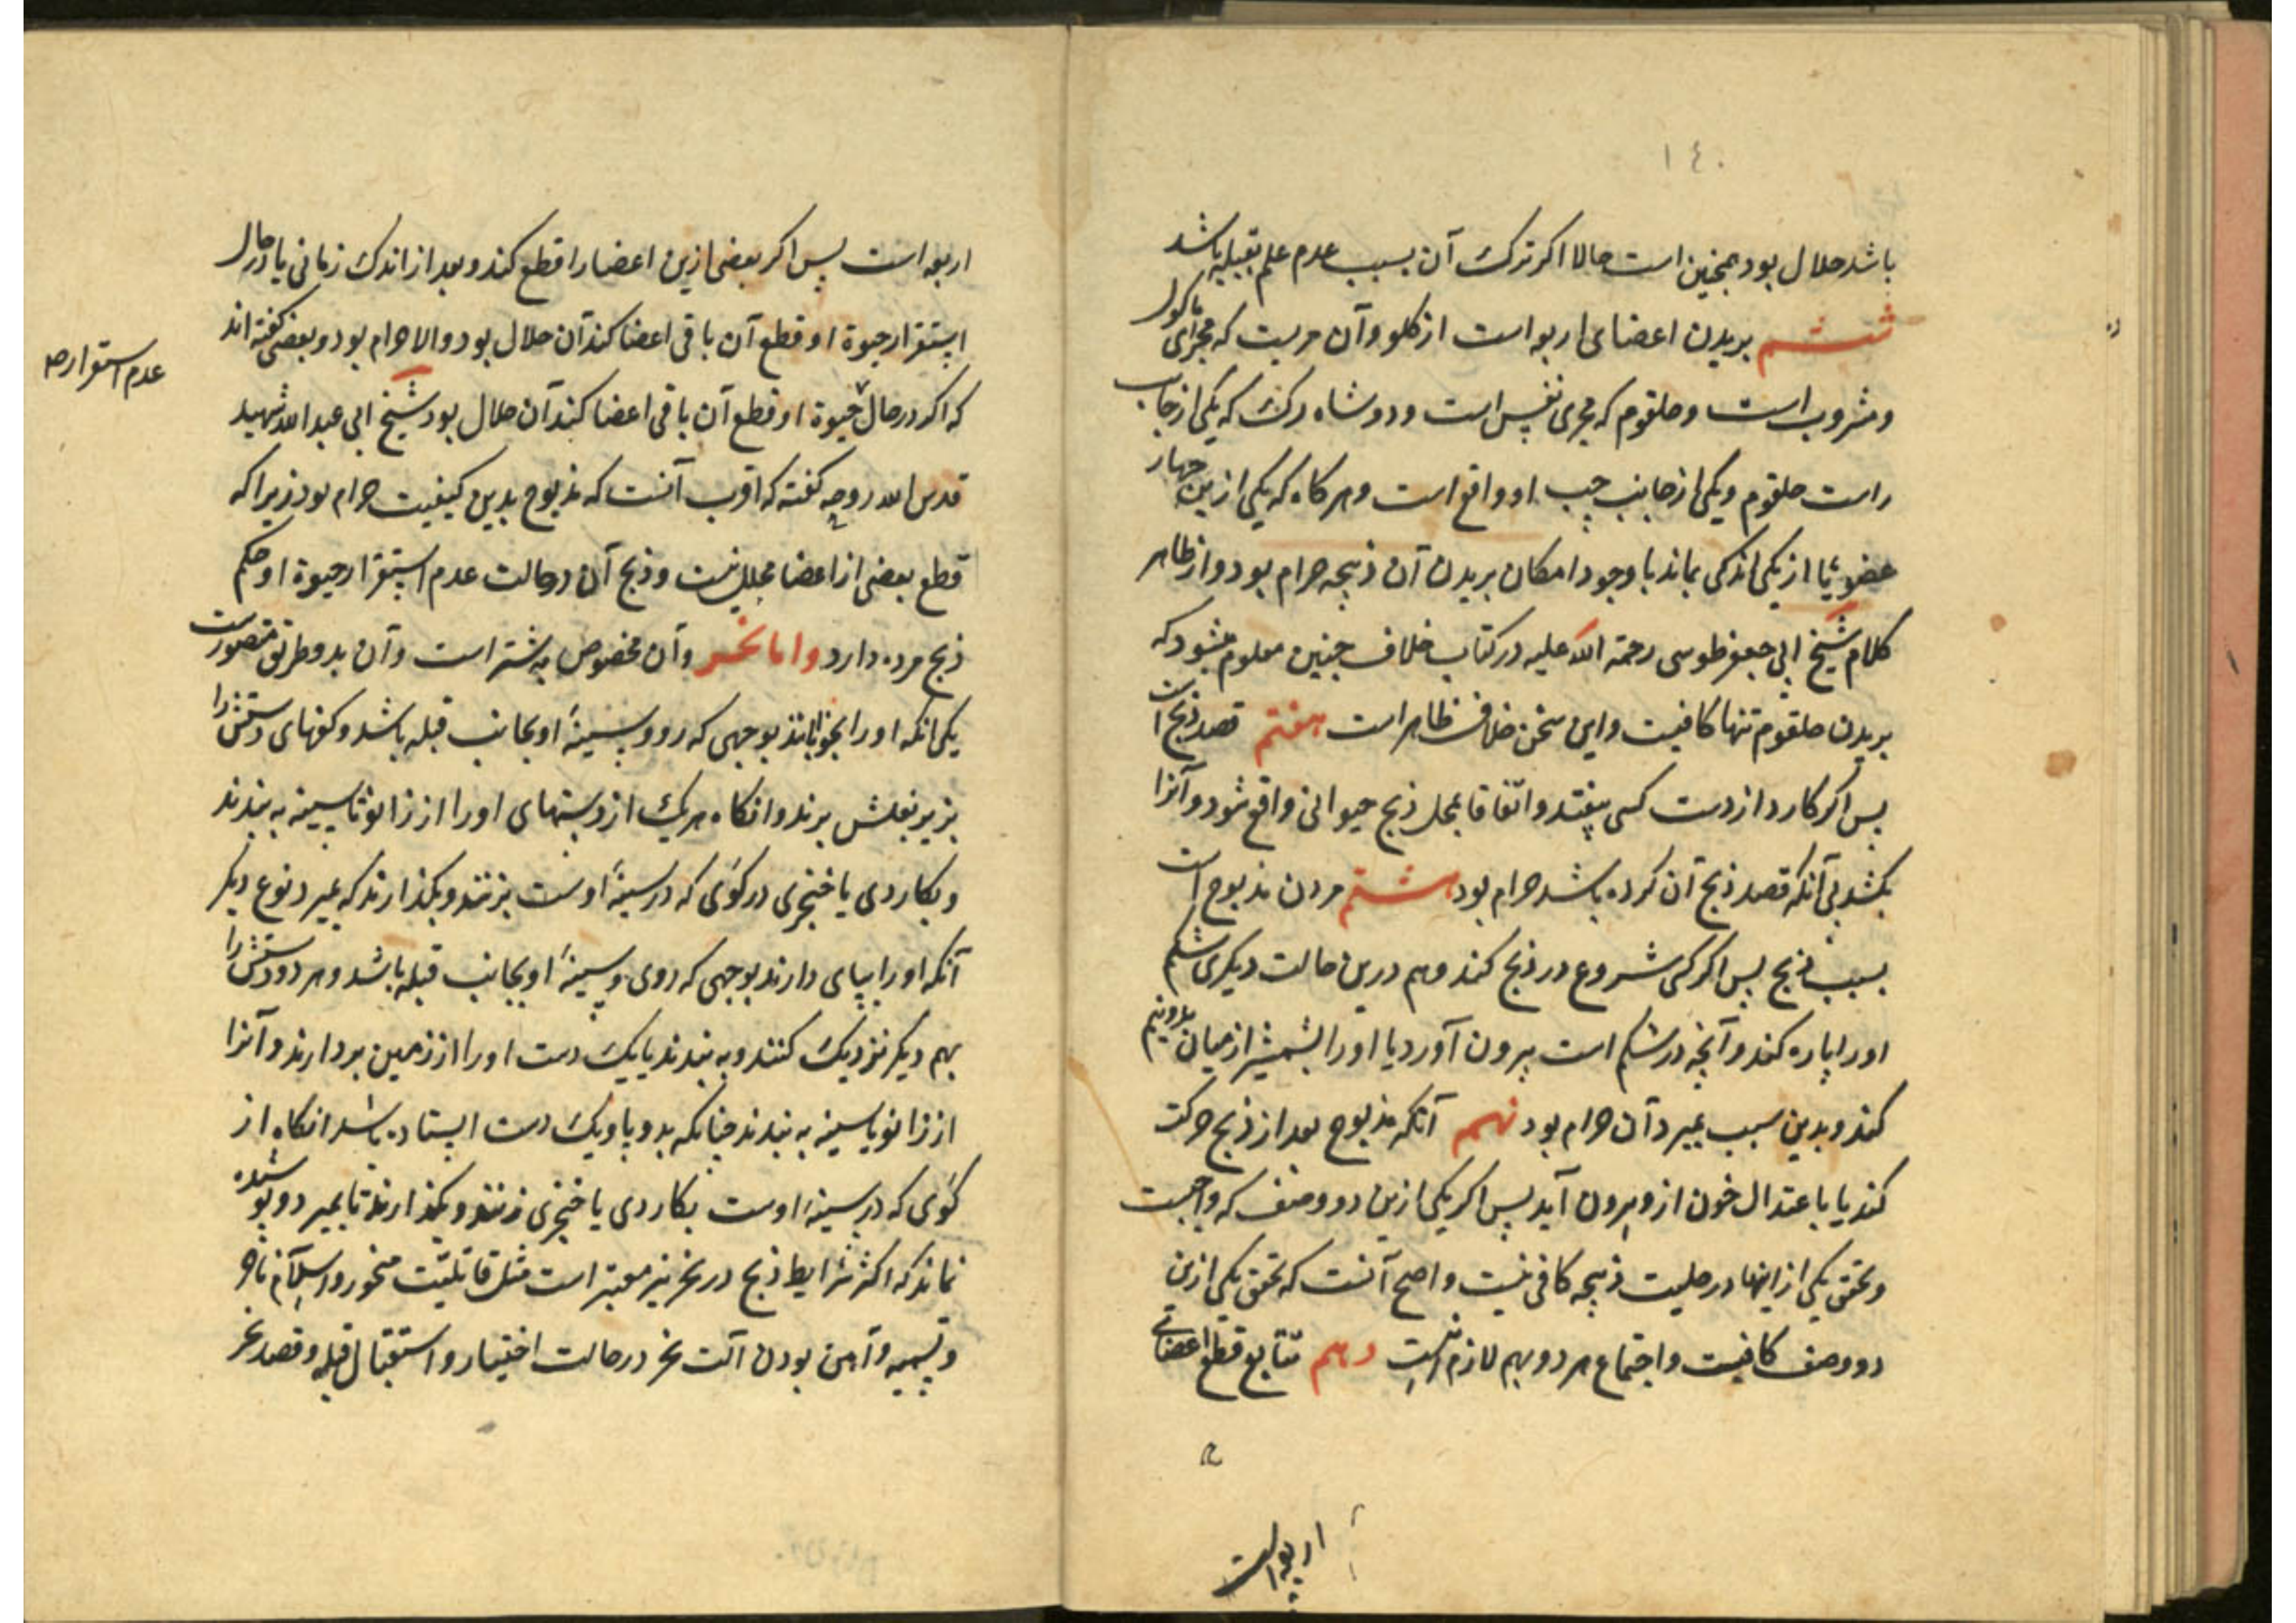 ١٤٠
باشد حلال بود همچنین است حالا اگر ترک آن بسبب عدم علم بقبله باشد
ششم بریدن اعضای اربعه است از کلو وآن مریست که مجرای ماکول
ومشروب است وحلقوم که مجری نفس است ودو شاه رک که یکی از جانب
راست حلقوم ویکی از جانب چپ او واقع است وهرکاه که یکی ازین چهار
عضو یا از یکی اندکی بماند با وجود امکان بریدن آن ذبیحه حرام بود واز ظاهر
کلام شیخ ابی جعفر طوسی رحمة الله علیه در کتاب خلاف چنین معلوم میشود که
بریدن حلقوم تنها کافیست واین سخن خلاف ظاهر است هفتم قصد ذبح است
پس اکر کارد از دست کسی بیفتد واتفاقا بمحل ذبح حیوانی واقع شود وآنرا
بکشد بی آنکه قصد ذبح آن کرده باشد حرام بود هشتم مردن مذبوح است
بسبب ذبح پس اکر کسی شروع در ذبح کند وهم درین حالت دیکری شکم
اورا پاره کند وآنچه در شکم است بیرون آورد یا اورا بشمشیر از میان بدونیم
کند وبدین سبب بمیرد آن حرام بود نهم آنکه مذبوح بعد از ذبح حرکت
کند یا باعتدال خون ازو بیرون آید پس اکر یکی ازین دو وصف که واجبست
وتحقق یکی ازینها در حلیت ذبیحه کافی نیست واصح آنست که تحقق یکی ازین
دو وصف کافیست واجتماع هر دو بهم لازم نیست دهم تتابع قطع اعضای
اربعه است
اربعه است پس اکر بعضی ازین اعضا را قطع کند وبعد از اندک زمانی یا در حال
استقرار حیوة او قطع آن باقی اعضا کند آن حلال بود والا حرام بود وبعضی کفته اند
که اکر در حال حیوة او قطع آن باقی اعضا کند آن حلال بود شیخ ابی عبد الله شهید
عدم استقرار صح
قدس الله روحه کفته که اقرب آنست که مذبوح بدین کیفیت حرام بود زیرا که
قطع بعضی از اعضا محلل نیست وذبح آن در حالت عدم استقرار حیوة او حکم
ذبح مرده دارد واما نحر وآن مخصوص به شتر است وآن بدو طریق متصورست
یکی انکه اورا بخوابانند بوجهی که رو وسینهٔ او بجانب قبله باشد وکفهای دستش را
بزیر بغلش برند وانکاه هریک از دستهای اورا از زانو تا سینه به بندند
وبکاردی یا خنجری در کوی که در سینهٔ اوست بزنند وبکذارند که بمیرد نوع دیکر
آنکه اورا بپای دارند بوجهی که روی وسینهٔ او بجانب قبله باشد وهر دو دستش را
بهم دیکر نزدیک کنند وبه بندند یا یک دست اورا از زمین بردارند وآنرا
از زانو با سینه به بندند چنانکه بدو پا ویک دست ایستاده باشد انکاه از
کوی که در سینهٔ اوست بکاردی یا خنجری زنند وبکذارند تا بمیرد وپوشیده
نماند که اکثر شرایط ذبح در نحر نیز معتبر است مثل قابلیت منحور واسلام ناحر
وتسمیه وآهن بودن آلت نحر در حالت اختیار واستقبال قبله وقصد نحر